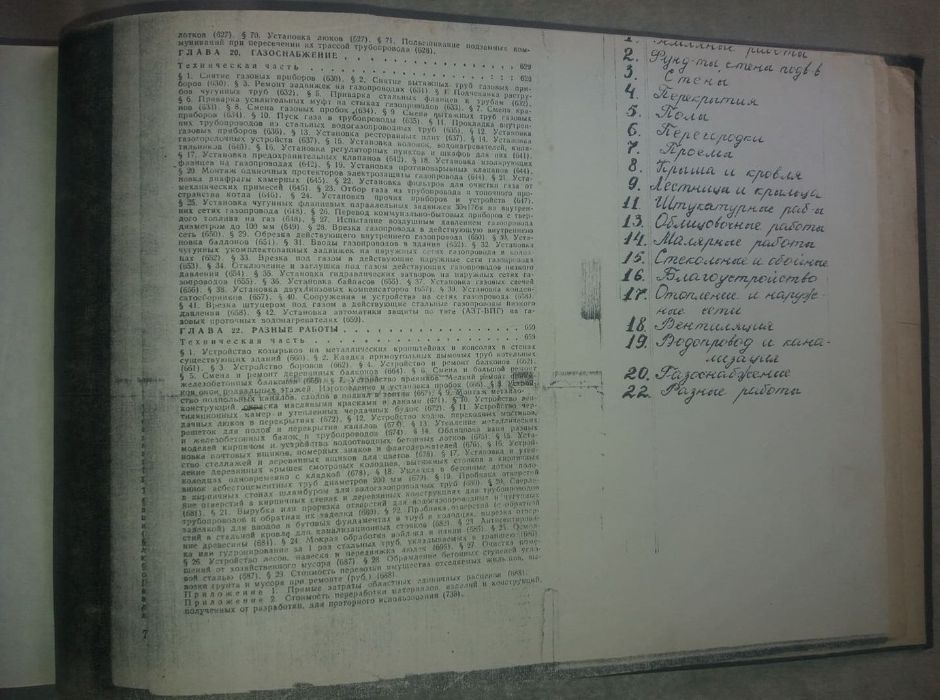 лотков (627). § 70. Установка люков (627). § 71. Подвешивание подземных ком-
муникаций при пересечении их трассой трубопровода (628).
ГЛАВА 20. ГАЗОСНАБЖЕНИЕ 629
Техническая часть 629
§ 1. Снятие газовых приборов (630). § 2. Снятие вытяжных труб газовых при-
боров (630). § 3. Ремонт задвижек на газопроводах (631). § 4. Изоляция раст-
чугунных труб (632). § 5. Приварка стальных фланцев к трубам (632).
§ 6. Приварка усилительных муфт на стыках газопроводов (633). § 7. Смена кра-
нов (633). § 8. Смена газовых пробок (634). § 9. Смена вытяжных труб газовых
приборов (634). § 10. Пуск газа в трубопроводы (635). § 11. Прокладка внутрен-
них трубопроводов из стальных водогазопроводных труб (635). § 12. Установка
газовых приборов (636). § 13. Установка ресторанных плит (637). § 14. Установка
газогорелочных устройств (637). § 15. Установка колонок, водонагревателей, кипя-
тильников (640). § 16. Установка регуляторных пунктов и шкафов для них (641).
§ 17. Установка предохранительных клапанов (642). § 18. Установка изолирующих
фланцев на газопроводах (642). § 19. Установка противоварывных клапанов (644).
§ 20. Монтаж одиночных протекторов электрозащиты газопровода (644). § 21. Уста-
новка диафрагм камерных (645). § 22. Установка фильтров для очистки газа от
механических примесей (645). § 23. Отбор газа из трубопровода и топочного про-
странства котла (646). § 24. Установка прочих приборов и устройств (647).
§ 25. Установка чугунных фланцевых параллельных задвижек на внутрен-
них сетях газопровода (648). § 26. Перевод коммунально-бытовых приборов с твер-
дого топлива на газ (648). § 27. Испытание воздушным давлением газопровода
диаметром до 100 мм (649). § 28. Врезка газопровода в действующую внутреннюю
сеть (650). § 29. Обрезка действующего внутреннего газопровода (650). § 30. Уста-
новка баллонов (651). § 31. Вводы газопроводов в здания (652). § 32. Установка
чугунных укомплектованных задвижек на наружных сетях газопровода в колод-
цах (652). § 33. Врезка под газом в действующие наружные сети газопровода
(653). § 34. Отключение и заглушка под газом действующих газопроводов низкого
давления (654). § 35. Установка гидравлических затворов на наружных сетях га-
зопроводов (655). § 36. Установка байпасов (655). § 37. Установка газовых свечей
(656). § 38. Установка двухлинзовых компенсаторов (657). § 39. Установка конден-
сатосборников (657). § 40. Сооружения и устройства на сетях газопровода (658).
§ 41. Врезка штуцером под газом в действующие стальные газопроводы низкого
давления (658). § 42. Установка автоматики защиты по тяге (АЗТ-ВПГ) на га-
зовых проточных водонагревателях (659).
ГЛАВА 22. РАЗНЫЕ РАБОТЫ 659
Техническая часть 659
§ 1. Устройство козырьков на металлических кронштейнах и консолях в стенах
существующих зданий (660). § 2. Кладка прямоугольных дымовых труб котельных
(661). § 3. Устройство боровов (662). § 4. Устройство и ремонт балконов (662).
§ 5. Смена и ремонт деревянных балконов (664). § 6. Смена и большой ремонт
железобетонных балконов § 7. Устройство приямков. Мелкий ремонт
кон окон подвальных этажей. Изготовление и установка пробок § 8. Устрой-
ство подпольных каналов, сходов в подвал и зонтов (667). § 9. Монтаж металло-
конструкций, окраска масляными красками и лаками (671). § 10. Устройство вен-
тиляционных камер и утепленных чердачных будок (672). § 11. Устройство чер-
дачных люков в перекрытиях (672). § 12. Устройство ходов, переходных мостиков,
решеток для полов и перекрытия каналов (673). § 13. Утепление металлических
и железобетонных балок и трубопроводов (674). § 14. Обкладка ванн разных
моделей кирпичом и устройство водоотводных бетонных лотков (675). § 15. Уста-
новка почтовых ящиков, номерных знаков и флагодержателей (676). § 16. Устрой-
ство стеллажей и деревянных ящиков для цветов (676). § 17. Установка и утеп-
ление деревянных крышек смотровых колодцев, вытяжных стояков в кирпичных
колодцах одновременно с кладкой (678). § 18. Укладка в бетонные лотки поло-
винок асбестоцементных труб диаметром 200 мм (679). § 19. Пробивка отверстий
в кирпичных стенах шлямбуром для водогазопроводных труб (680). § 20. Сверле-
ние отверстий в кирпичных стенах и деревянных конструкциях для трубопроводов
(681). § 21. Вырубка или прорезка отверстий для водогазопроводных и чугунных
трубопроводов и обратная их заделка (682). § 22. Пробивка отверстий (с обратной
заделкой) для вводов в бутовых фундаментах и труб в колодцах, вырезка отвер-
стий в стальной кровле для канализационных стояков (682). § 23. Антисептирова-
ние древесины (684). § 24. Мокрая обработка войлока и пакли (685). § 25. Осмол-
ка или гудронирование за 1 раз стальных труб, укладываемых в траншею (686).
§ 26. Устройство лесов, навеска и передвижка люлек (686). § 27. Очистка поме-
щений от хозяйственного мусора (687). § 28. Обрамление бетонных ступеней угло-
вой сталью (687). § 29. Стоимость перевозки имущества отселяемых жильцов, вы-
возки грунта и мусора при ремонте (руб.) (688).
Приложение 1. Прямые затраты областных единичных расценок (688).
Приложение 2. Стоимость переработки материалов, изделий и конструкций,
полученных от разработки, для повторного использования (738).
7
1. Земляные работы
2. Фунд-ты, стены подв-в
3. Стены
4. Перекрытия
5. Полы
6. Перегородки
7. Проемы
8. Крыша и кровля
9. Лестницы и крыльца
11. Штукатурные раб-ы
13. Облицовочные работы
14. Малярные работы
15. Стекольные и обойные
16. Благоустройство
17. Отопление и наруж-
ные сети
18. Вентиляция
19. Водопровод и кана-
лизация
20. Газоснабжение
22. Разные работы